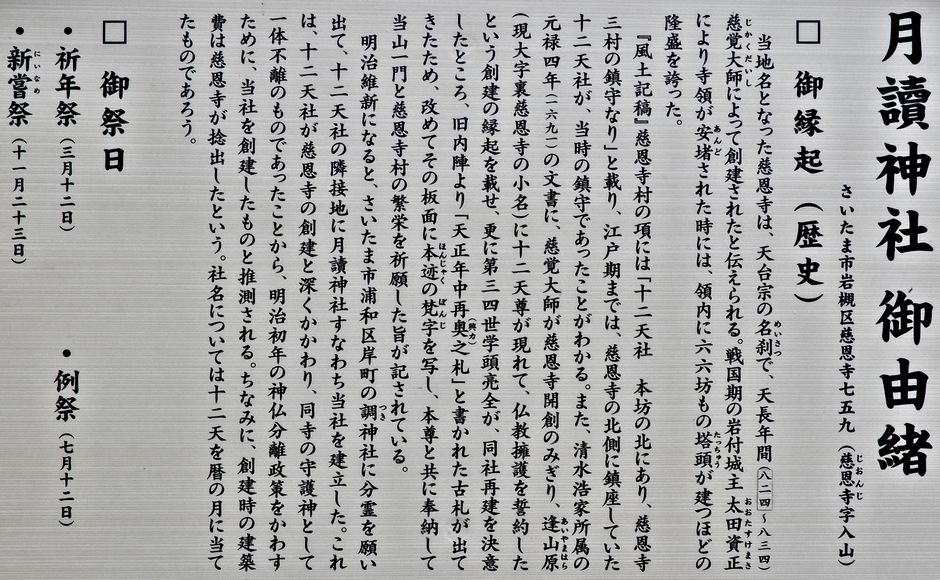 月讀神社 御由緒
さいたま市岩槻区慈恩寺七五九(慈恩寺字入山)
□ 御縁起(歴史)
当地名となった慈恩寺は、天台宗の名刹で、天長年間(八二四～八三四)
慈覚大師によって創建されたと伝えられる。戦国期の岩付城主 太田資正
により寺領が安堵された時には、領内に六六坊もの塔頭が建つほどの
隆盛を誇った。
『風土記稿』慈恩寺村の項には「十二天社 本坊の北にあり、慈恩寺
三村の鎮守なり」と載り、江戸期までは、慈恩寺の北側に鎮座していた
十二天社が、当時の鎮守であったことがわかる。また、清水浩家所属の
元禄四年(一六九一)の文書に、慈覚大師が慈恩寺開創のみぎり、逢山原
(現大字裏慈恩寺の小名)に十二天尊が現れて、仏教擁護を誓約した
という創建の縁起を載せ、更に第三四世学頭亮全が、同社再建を決意
したところ、旧内陣より「天正年中再奥(興カ)之札」と書かれた古札が出て
きたため、改めてその板面に本迹の梵字を写し、本尊と共に奉納して
当山一門と慈恩寺村の繁栄を祈願した旨が記されている。
明治維新になると、さいたま市浦和区岸町の調神社に分霊を願い
出て、十二天社の隣接地に月讀神社すなわち当社を建立した。これ
は、十二天社が慈恩寺の創建と深くかかわり、同寺の守護神として
一体不離のものであったことから、明治初年の神仏分離政策をかわす
ために、当社を創建したものと推測される。ちなみに、創建時の建築
費は慈恩寺が捻出したという。社名については十二天を暦の月に当て
たものであろう。
□ 御祭日
• 祈年祭(三月十二日)
• 例祭(七月十二日)
• 新嘗祭(十一月二十三日)